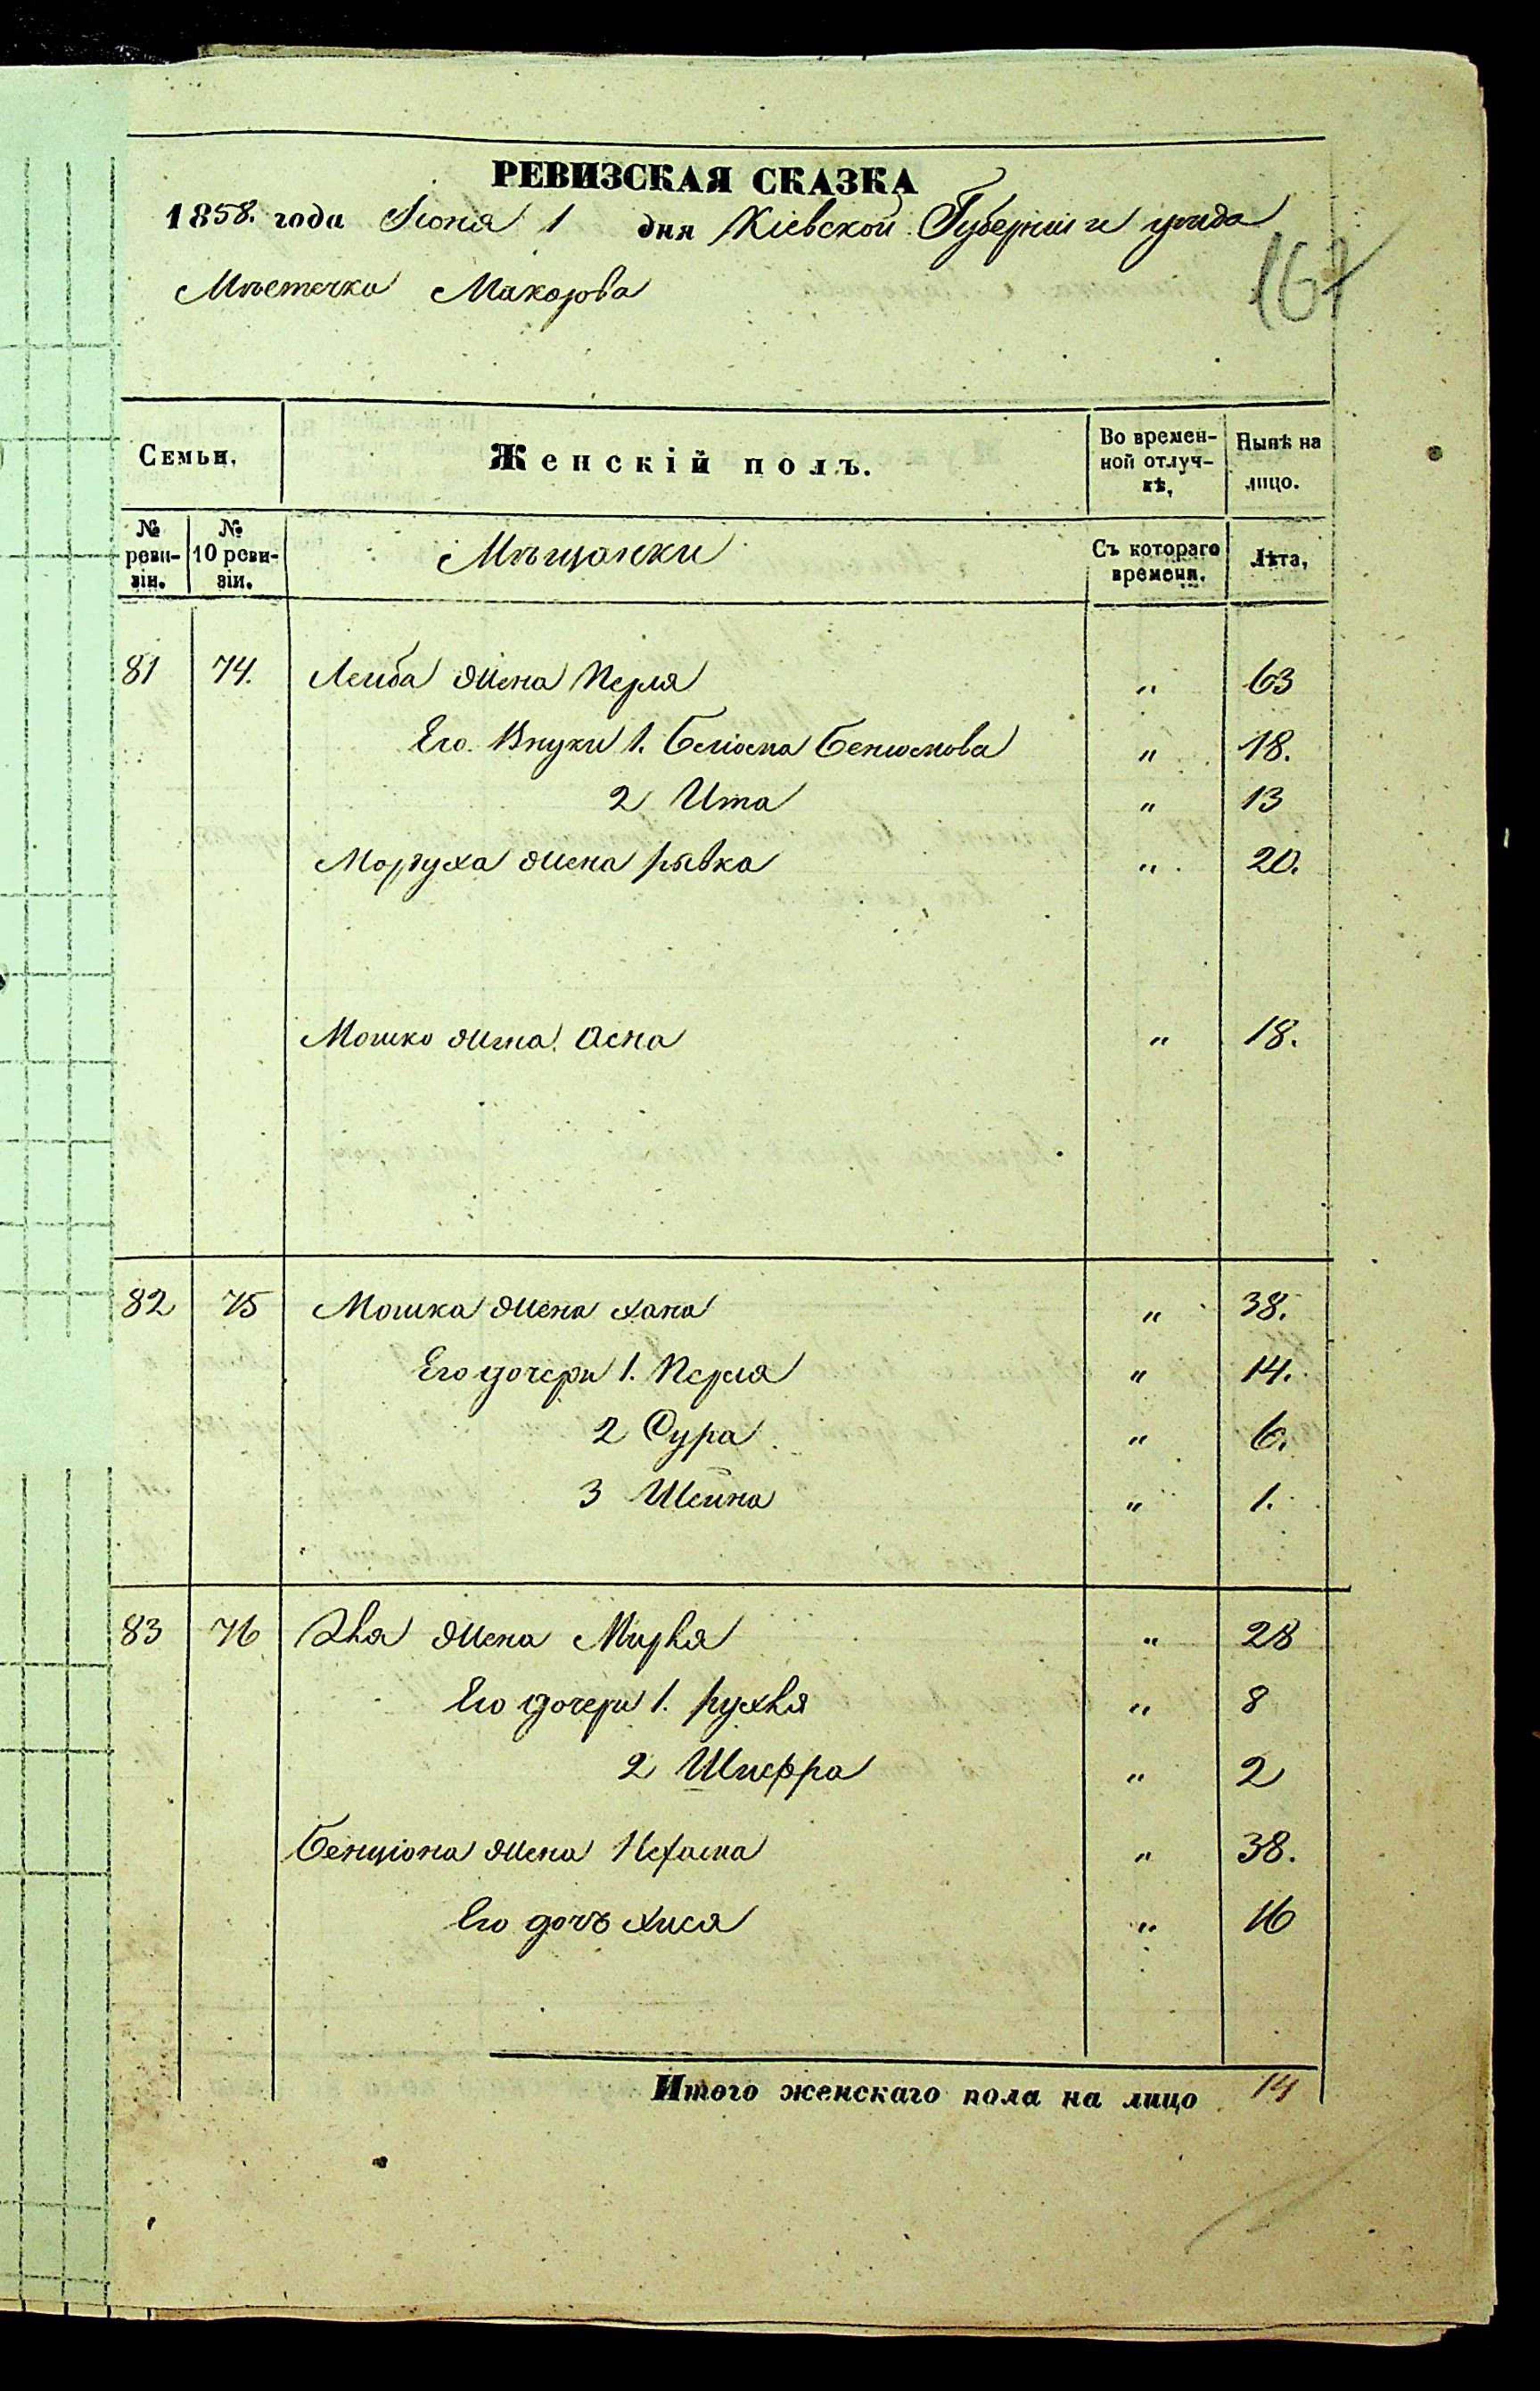 РЕВИЗСКАЯ СКАЗКА
1858. года Іюня 1 дня Кіевской Губерніи и уѣзда
Мѣстечка Макарова
167
Семьи. Женскій полъ. Во времен-ной отлуч-кѣ, Нынѣ на лицо.
№ реви-зіи. № 10 реви-зіи. Мѣщанки Съ котораго времени. Лѣта,
81 74. Лейба жена Перля " 63
Его Внуки 1. Бейла " 18.
2 Ита " 13
Мордуха жена рывка " 20.
Мошко жена Асна " 18.
82 75 Мошка жена хана " 38.
Его дочери 1. Перля " 14.
2 Сура " 6.
3 Шейна " 1.
83 76 жена Мирля " 28
Его дочери 1. рухля " 8
2 Шифра " 2
Бенціона жена Нехама " 38.
Его дочъ хися " 16
Итого женскаго пола на лицо 14